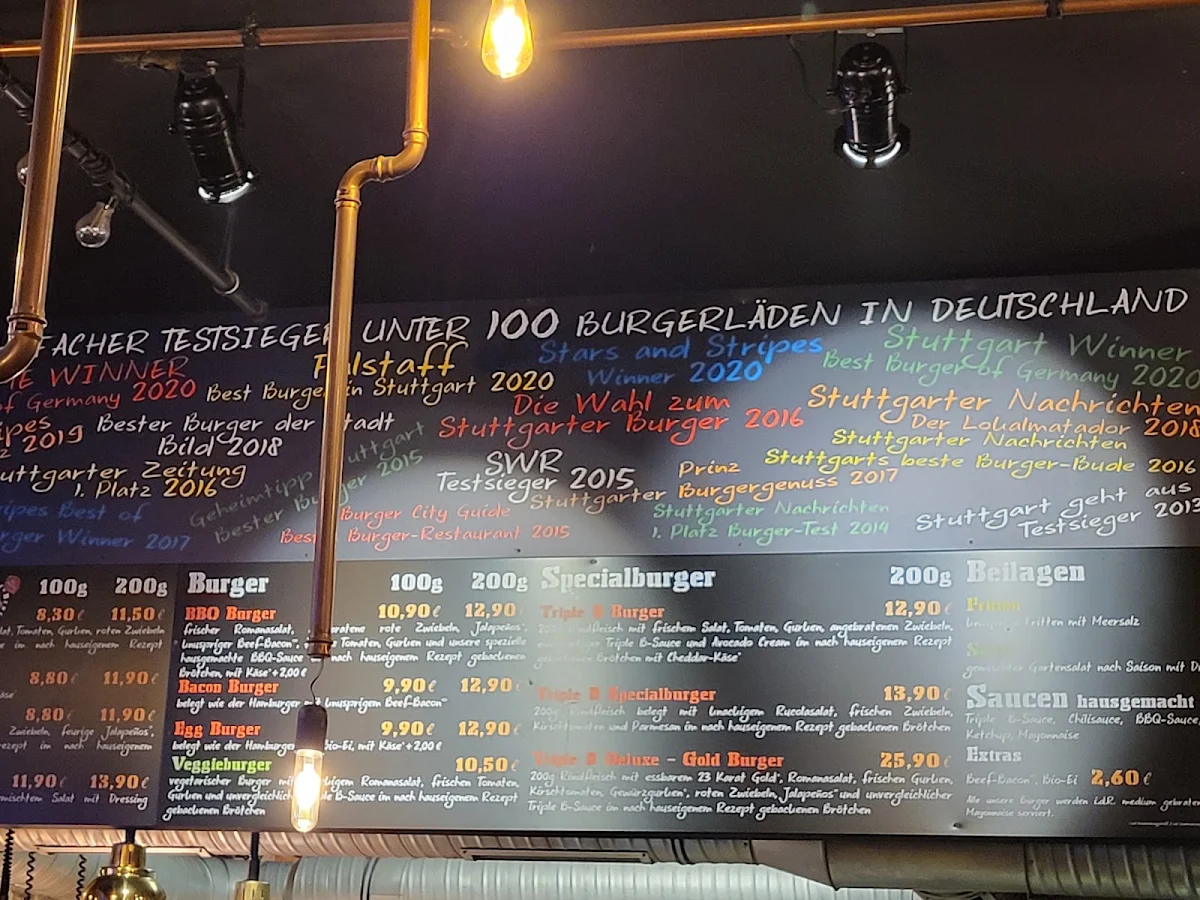 FACHER TESTSIEGER UNTER 100 BURGERLÄDEN IN DEUTSCHLAND
WINNER
of Germany 2020
Falstaff
Best Burger in Stuttgart 2020
Stars and Stripes
Winner 2020
Stuttgart Winner
Best Burger of Germany 2020
2019
Bester Burger der Stadt
Bild 2018
Die Wahl zum
Stuttgarter Burger 2016
Stuttgarter Nachrichten
Der Lokalmatador 2018
Stuttgarter Nachrichten
Stuttgarts beste Burger-Bude 2016
Stuttgarter Zeitung
1. Platz 2016
Geheimtipp Stuttgart
Bester Burger 2015
SWR
Testsieger 2015
Prinz
Stuttgarter Burgergenuss 2017
Best of
Burger Winner 2017
Burger City Guide
Best Burger-Restaurant 2015
Stuttgarter Nachrichten
1. Platz Burger-Test 2014
Stuttgart geht aus
Testsieger 2013
100g 200g
8,30 € 11,50 €
Tomaten, Gurken, roten Zwiebeln
im nach hauseigenem Rezept
8,80 € 11,90 €
8,80 € 11,90 €
Zwiebeln, feurige Jalapeños
im nach hauseigenem
11,90 € 13,90 €
Salat mit Dressing
Burger 100g 200g
BBQ Burger 10,90 € 12,90
frischer Romanasalat, rote Zwiebeln, Jalapeños
knuspriger Beef-Bacon Tomaten, Gurken und unsere spezielle
hausgemachte BBQ-Sauce nach hauseigenem Rezept gebackenen
Brötchen, mit Käse +2,00 €
Bacon Burger 9,90 € 12,90
belegt wie der Hamburger knusprigem Beef-Bacon
Egg Burger 9,90 € 12,90
belegt wie der Hamburger Bio-Ei, mit Käse +2,00 €
Veggieburger 10,50
vegetarischer Burger mit Romanasalat, frischen Tomaten,
Gurken und unvergleichlicher B-Sauce im nach hauseigenem Rezept
gebackenen Brötchen
Specialburger 200g
Triple B Burger 12,90 €
200g Rindfleisch mit frischem Salat, Tomaten, Gurken, angebratenen Zwiebeln,
Triple B-Sauce und Avocado Cream im nach hauseigenem Rezept
gebackenen Brötchen mit Cheddar-Käse
Triple B Specialburger 13,90 €
200g Rindfleisch belegt mit knackigem Rucolasalat, frischen Zwiebeln,
Kirschtomaten und Parmesan im nach hauseigenem Rezept gebackenen Brötchen
Triple B Deluxe - Gold Burger 25,90 €
200g Rindfleisch mit essbarem 23 Karat Gold, Romanasalat, frischen Gurken,
Kirschtomaten, Gewürzgurken, roten Zwiebeln, Jalapeños und unvergleichlicher
Triple B-Sauce im nach hauseigenem Rezept gebackenen Brötchen
Beilagen
Pritten mit Meersalz
gemischter Gartensalat nach Saison mit
Saucen hausgemacht
Triple B-Sauce, Chilisauce, BBQ-Sauce,
Ketchup, Mayonnaise
Extras
Beef-Bacon, Bio-Ei 2,60 €
Alle unsere Burger werden i.d.R. medium gebraten
Mayonnaise serviert.